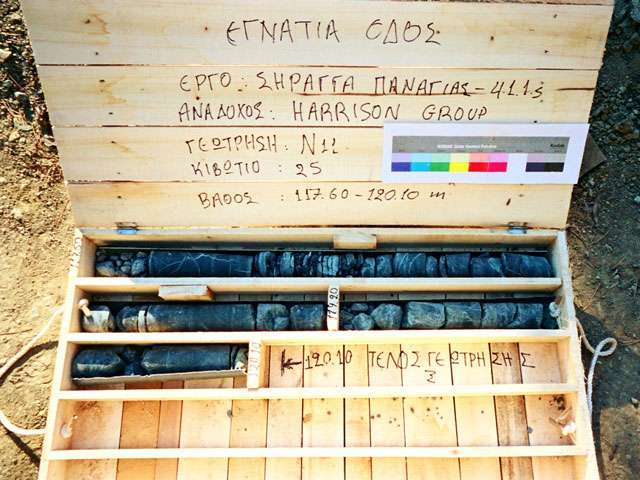 ΕΓΝΑΤΙΑ ΟΔΟΣ
ΕΡΓΟ: ΣΗΡΑΓΓΑ ΠΑΝΑΓΙΑΣ-4.1.1.3
ΑΝΑΔΟΧΟΣ: HARRISON GROUP
ΓΕΩΤΡΗΣΗ: N11
ΚΙΒΩΤΙΟ : 25
ΒΑΘΟΣ : 117.60-120.10 m
KODAK Color Control Patches
Kodak
119.20
120.10
←120.10 ΤΕΛΟΣ ΓΕΩΤΡΗΣΗΣ
Σ